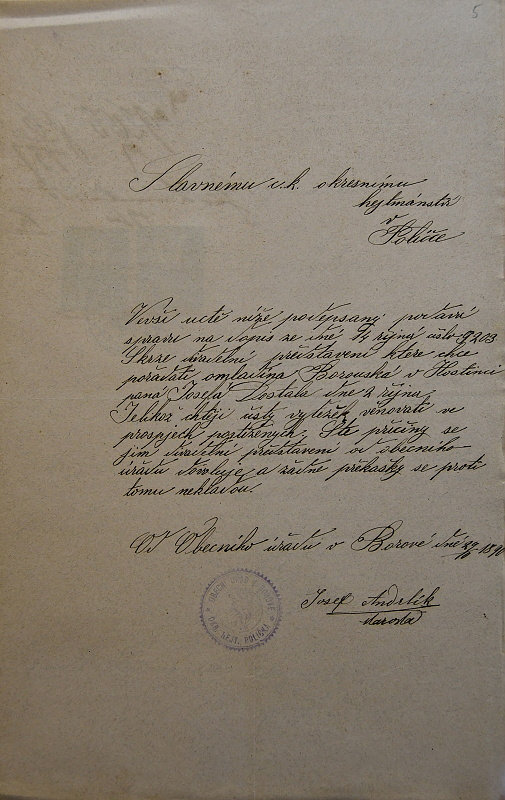 5
Slavnému c.k. okresnímu
hejtmánství
v
Poličce
Vevší uctě níže podepsaný podává
spravu na dopis ze dné října číslo 9203
Skrze divadelní představení ktere chce
pořádati omladina Borovská v Hostinci
paná Josefa Dostala dne 2 října
Jelikož chtějí čistý vytěžek věnovati ve
prospjěch postižených. Ste přičiny se
jim divadelní představení od obecniho
úřadu dovoluje a žádné překasky se proti
tomu nekladou.
Od Obecniho úřadu v Borové dné 1890
Josef Andrlík
starosta
OBECNÍ ÚŘAD V BOROVÉ
OKR. HEJT. POLIČKA